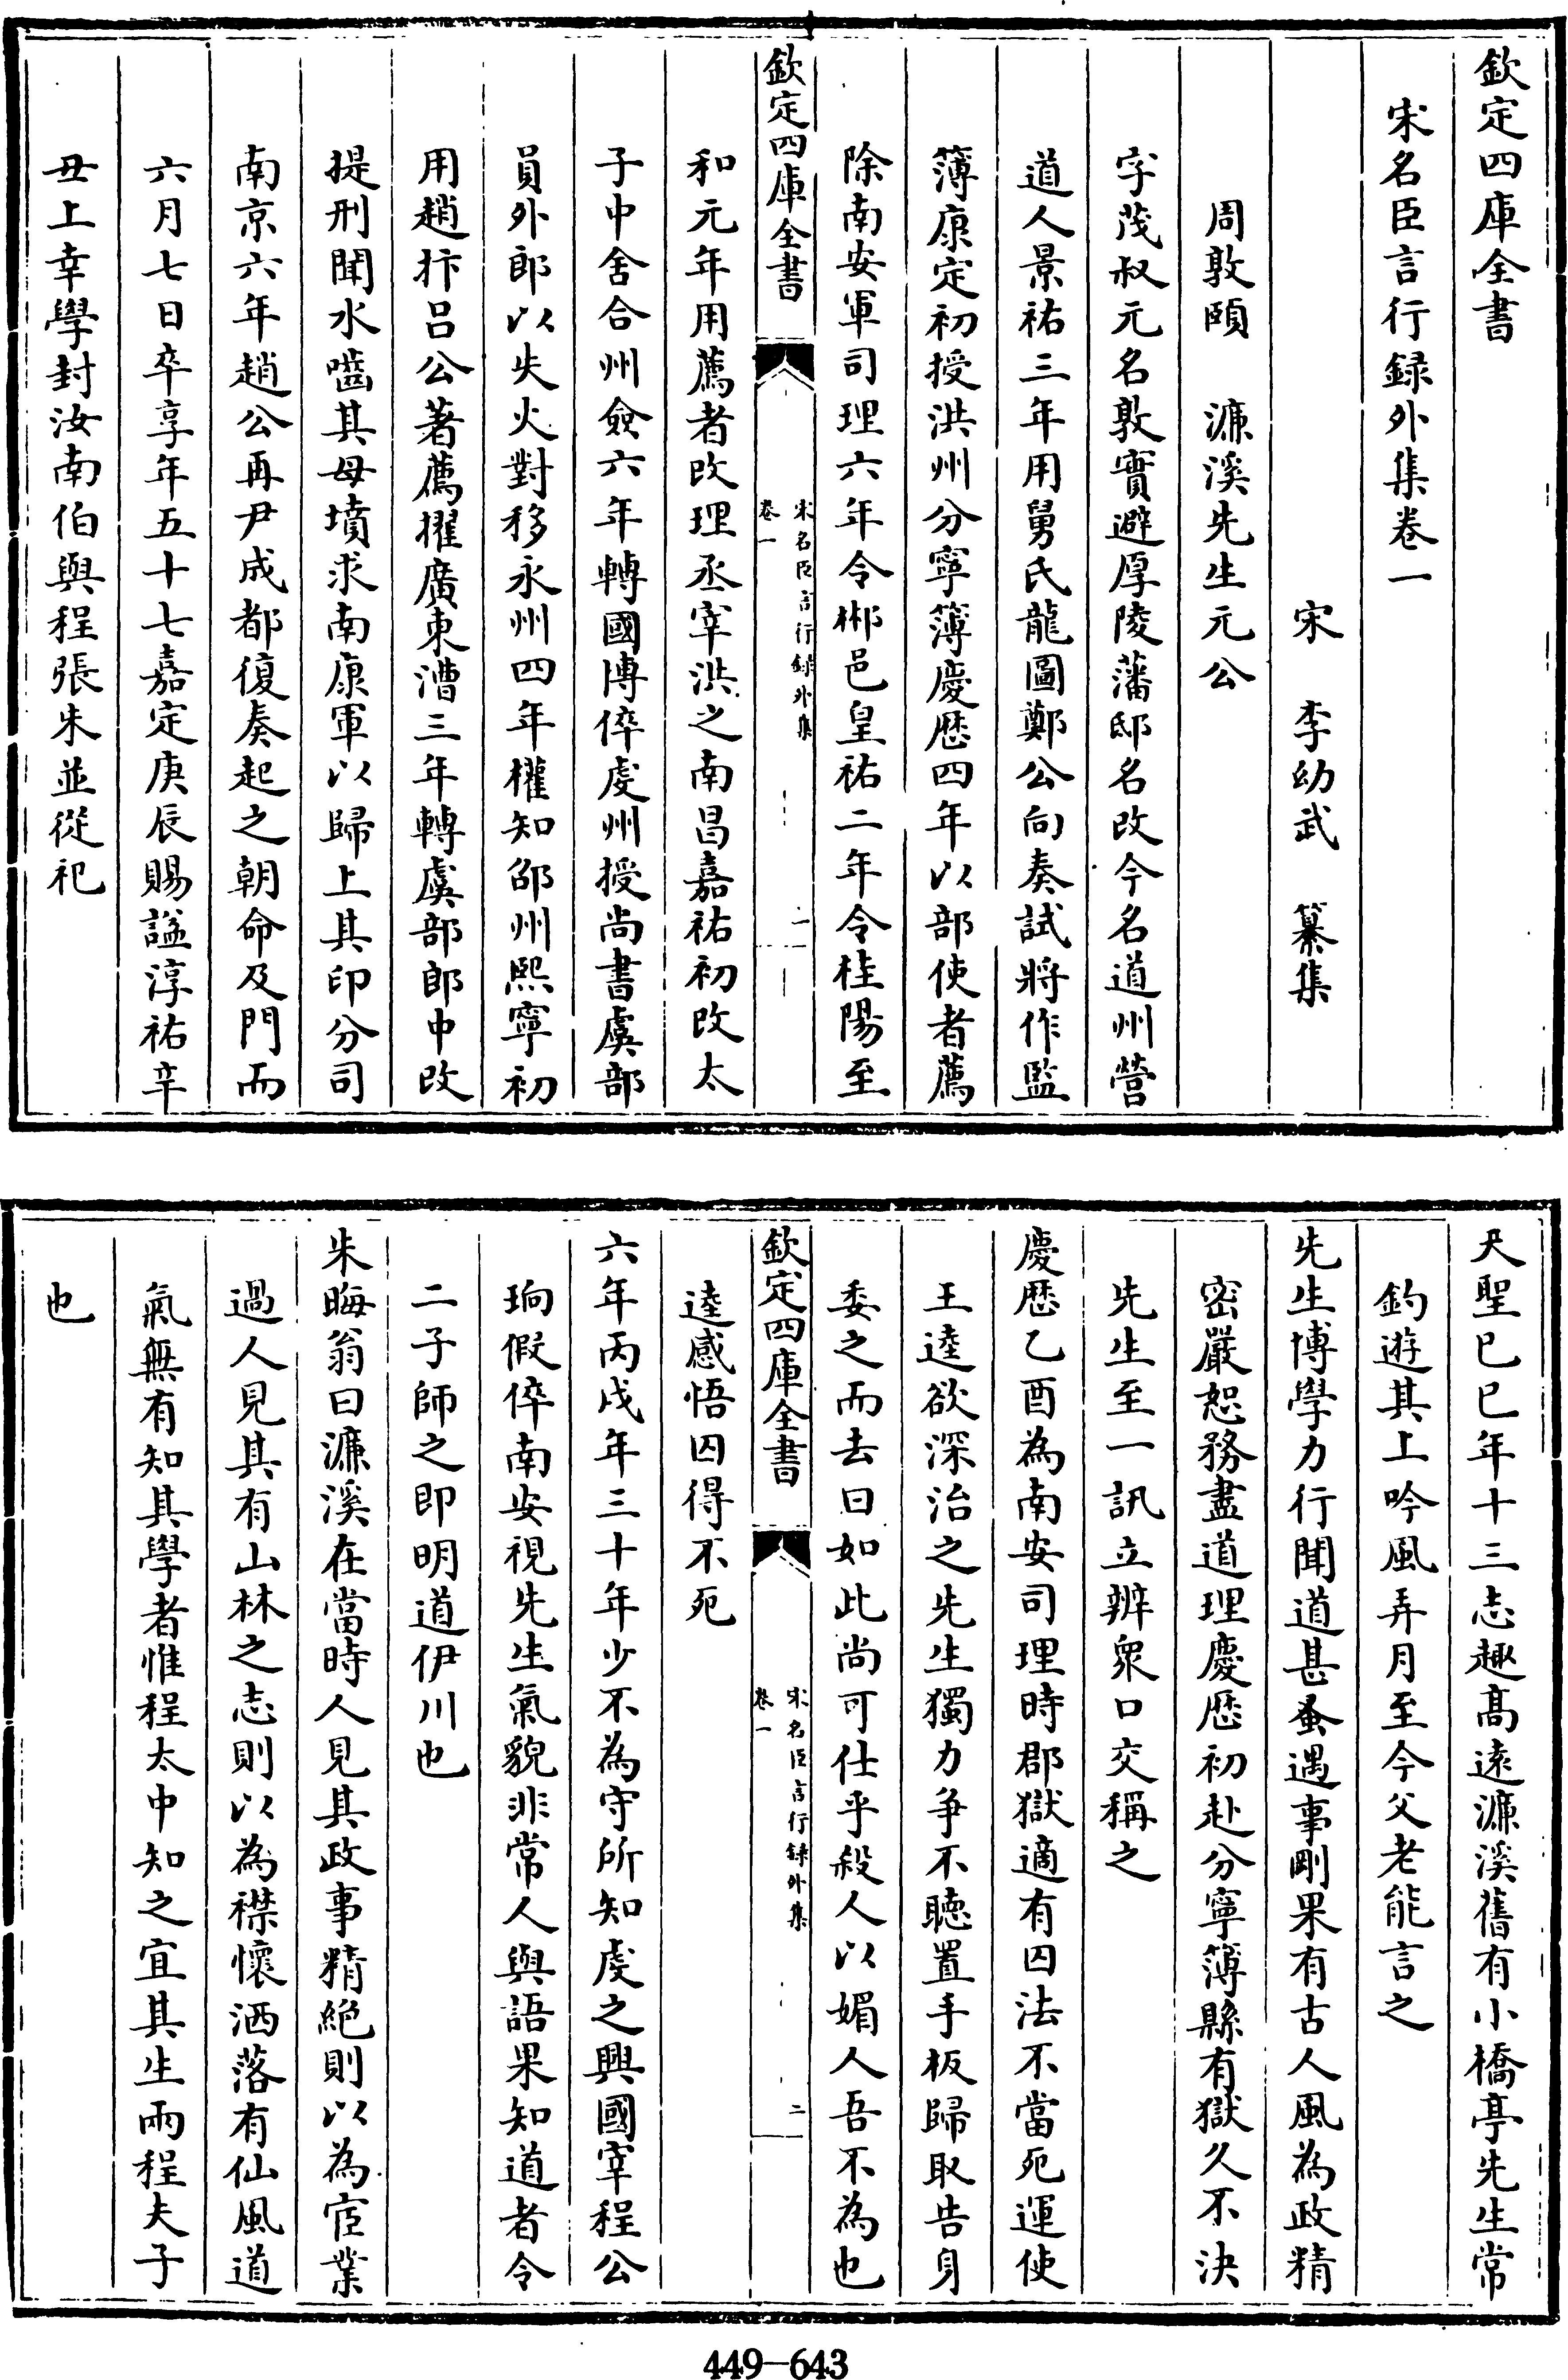 欽定四庫全書
宋名臣言行録外集卷一
宋 李幼武 纂集
周敦頤 濂溪先生元公
字茂叔元名敦實避厚陵藩邸名改今名道州營
道人景祐三年用舅氏龍圖鄭公向奏試將作監
簿康定初授洪州分寧簿慶厯四年以部使者薦
除南安軍司理六年令郴邑皇祐二年令桂陽至
欽定四庫全書
宋名臣言行録外集
卷一
一
和元年用薦者改理丞宰洪之南昌嘉祐初改太
子中舍合州僉六年轉國博倅虔州授尚書虞部
員外郎以失火對移永州四年權知邵州熙寧初
用趙抃吕公著薦擢廣東漕三年轉虞部郎中改
提刑聞水囓其母墳求南康軍以歸上其印分司
南京六年趙公再尹成都復奏起之朝命及門而
六月七日卒享年五十七嘉定庚辰賜諡淳祐辛
丑上幸學封汝南伯與程張朱並從祀
天聖已已年十三志趣髙逺濂溪舊有小橋亭先生常
釣遊其上吟風弄月至今父老能言之
先生博學力行聞道甚蚤遇事剛果有古人風為政精
密嚴恕務盡道理慶厯初赴分寧簿縣有獄久不決
先生至一訊立辨衆口交稱之
慶厯乙酉為南安司理時郡獄適有囚法不當死運使
王逵欲深治之先生獨力争不聽置手板歸取告身
委之而去曰如此尚可仕乎殺人以媚人吾不為也
欽定四庫全書
宋名臣言行録外集
卷一
二
逵感悟囚得不死
六年丙戌年三十年少不為守所知虔之興國宰程公
珦假倅南安視先生氣貌非常人與語果知道者令
二子師之即明道伊川也
朱晦翁曰濂溪在當時人見其政事精絶則以為宦業
過人見其有山林之志則以為襟懷洒落有仙風道
氣無有知其學者惟程太中知之宜其生兩程夫子
也
449—643